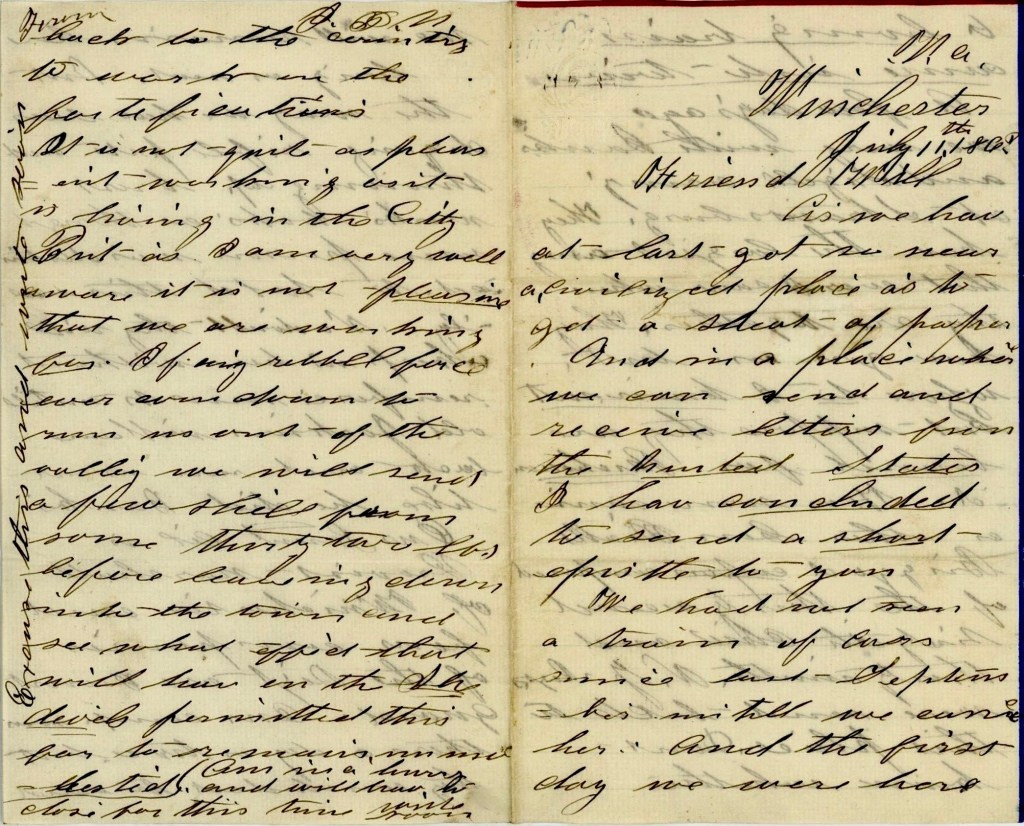 Va.
Winchester
July 11th 186
Friend Will
As we hav
at last got so near
a civilized place as to
get a sheat of paper
. And in a place where
we can send and
receive letters from
the United States
I hav concluded
to send a short
epistle to you
We had not seen
a train of cars
since last Septem
=ber untill we came
her. And the first
day we were here
back to the country
to work on the
fortifications
It is not quite as pleas
=ent working as it
is living in the City
But as I am very well
aware it is not pleasure
that we are working
for. If any rebbell force
ever com down to
run us out of the
vally we will send
a few shell from
some thirty two lbs
before leaveing down
into the town and
see what effect that
will hav on the
devels permitted this
far to remain unmo
=lested. (Am in a hurry
and will hav to
close for this time write
soon
From
Excuse this and write soon